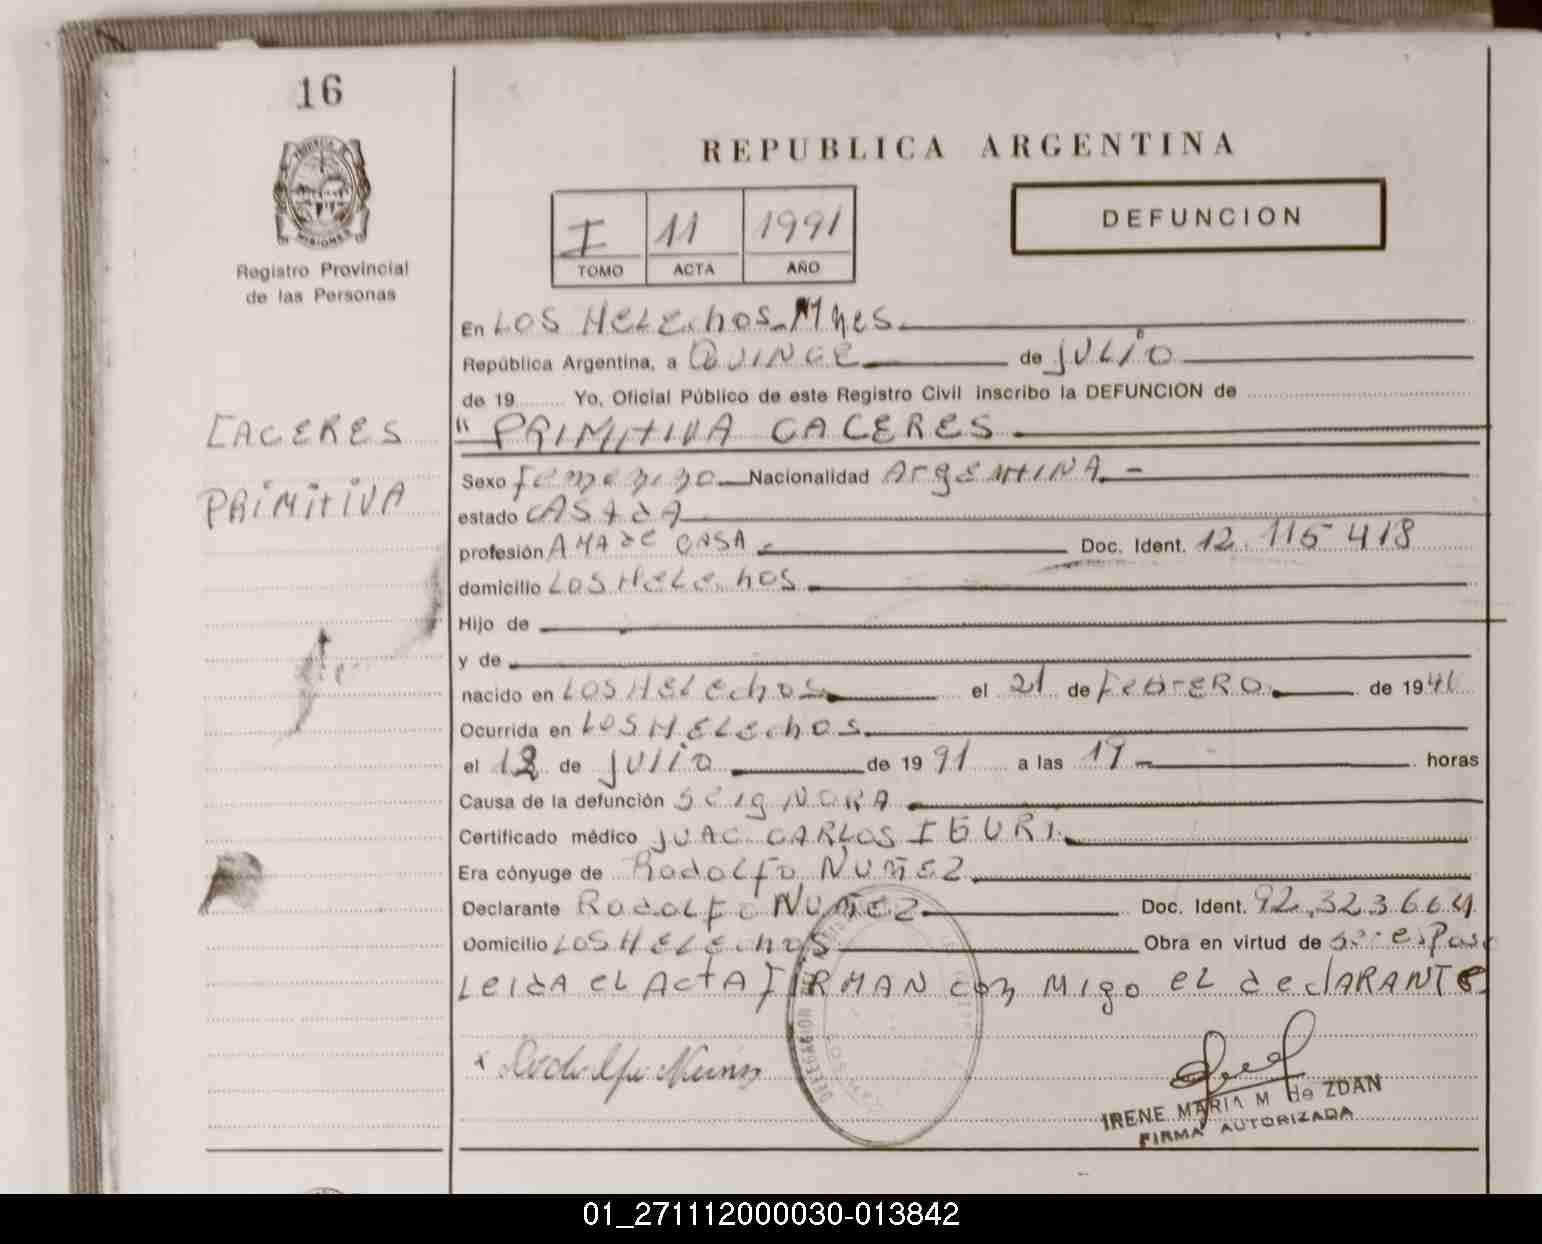 16
MISIONES
Registro Provincial
de las Personas
REPUBLICA ARGENTINA
I 11 1991
TOMO ACTA AÑO
DEFUNCION
En LOS HELEchos Mnes
República Argentina, a QUINCE de JULIO
de 19 Yo, Oficial Público de este Registro Civil inscribo la DEFUNCION de
CACERES
" PRIMITIVA CACERES
PRIMITIVA
Sexo femenino Nacionalidad ArgENTINA
estado CASADA
profesión AMA de CASA Doc. Ident. 12.115 418
domicilio LOS HELEchos
Hijo de
y de
nacido en LOS HELEchos el 21 de FEBRERO de 19
Ocurrida en LOS HELEchos
el de JULIO de 19 91 a las horas
Causa de la defunción SE IgNORA
Certificado médico CARLOS
Era cónyuge de RodoLfo NUÑEZ
Declarante RodoLfo NUÑEZ Doc. Ident. 92.323.664
Domicilio LOS HELEchos Obra en virtud de ser esposo
LeIdA eL ActA FIRMAN con MIgo eL decLARANTE
DELEGACION
IRENE MARIA M de ZDAN
FIRMA AUTORIZADA
01_271112000030-013842